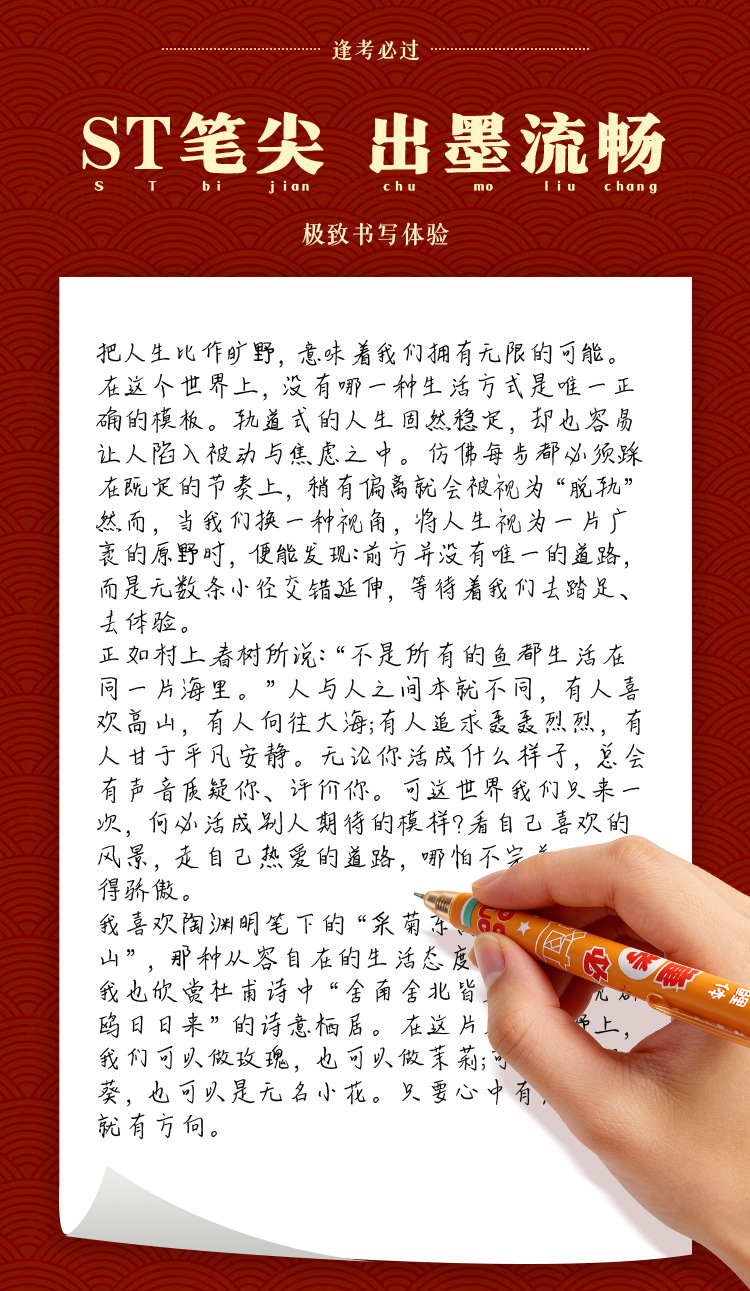 逢考必过
ST笔尖 出墨流畅
S T bi jian chu mo liu chang
极致书写体验
把人生比作旷野，意味着我们拥有无限的可能。
在这个世界上，没有哪一种生活方式是唯一正
确的模板。轨道式的人生固然稳定，却也容易
让人陷入被动与焦虑之中。仿佛每步都必须踩
在既定的节奏上，稍有偏离就会被视为“脱轨”
然而，当我们换一种视角，将人生视为一片广
袤的原野时，便能发现:前方并没有唯一的道路，
而是无数条小径交错延伸，等待着我们去踏足、
去体验。
正如村上春树所说:“不是所有的鱼都生活在
同一片海里。”人与人之间本就不同，有人喜
欢高山，有人向往大海;有人追求轰轰烈烈，有
人甘于平凡安静。无论你活成什么样子，总会
有声音质疑你、评价你。可这世界我们只来一
次，何必活成别人期待的模样?看自己喜欢的
风景，走自己热爱的道路，哪怕不完
得骄傲。
我喜欢陶渊明笔下的“采菊东
山”，那种从容自在的生活态度
我也欣赏杜甫诗中“舍南舍北皆
鸥日日来”的诗意栖居。在这片 野上，
我们可以做玫瑰，也可以做茉莉;可
葵，也可以是无名小花。只要心中有
就有方向。
必